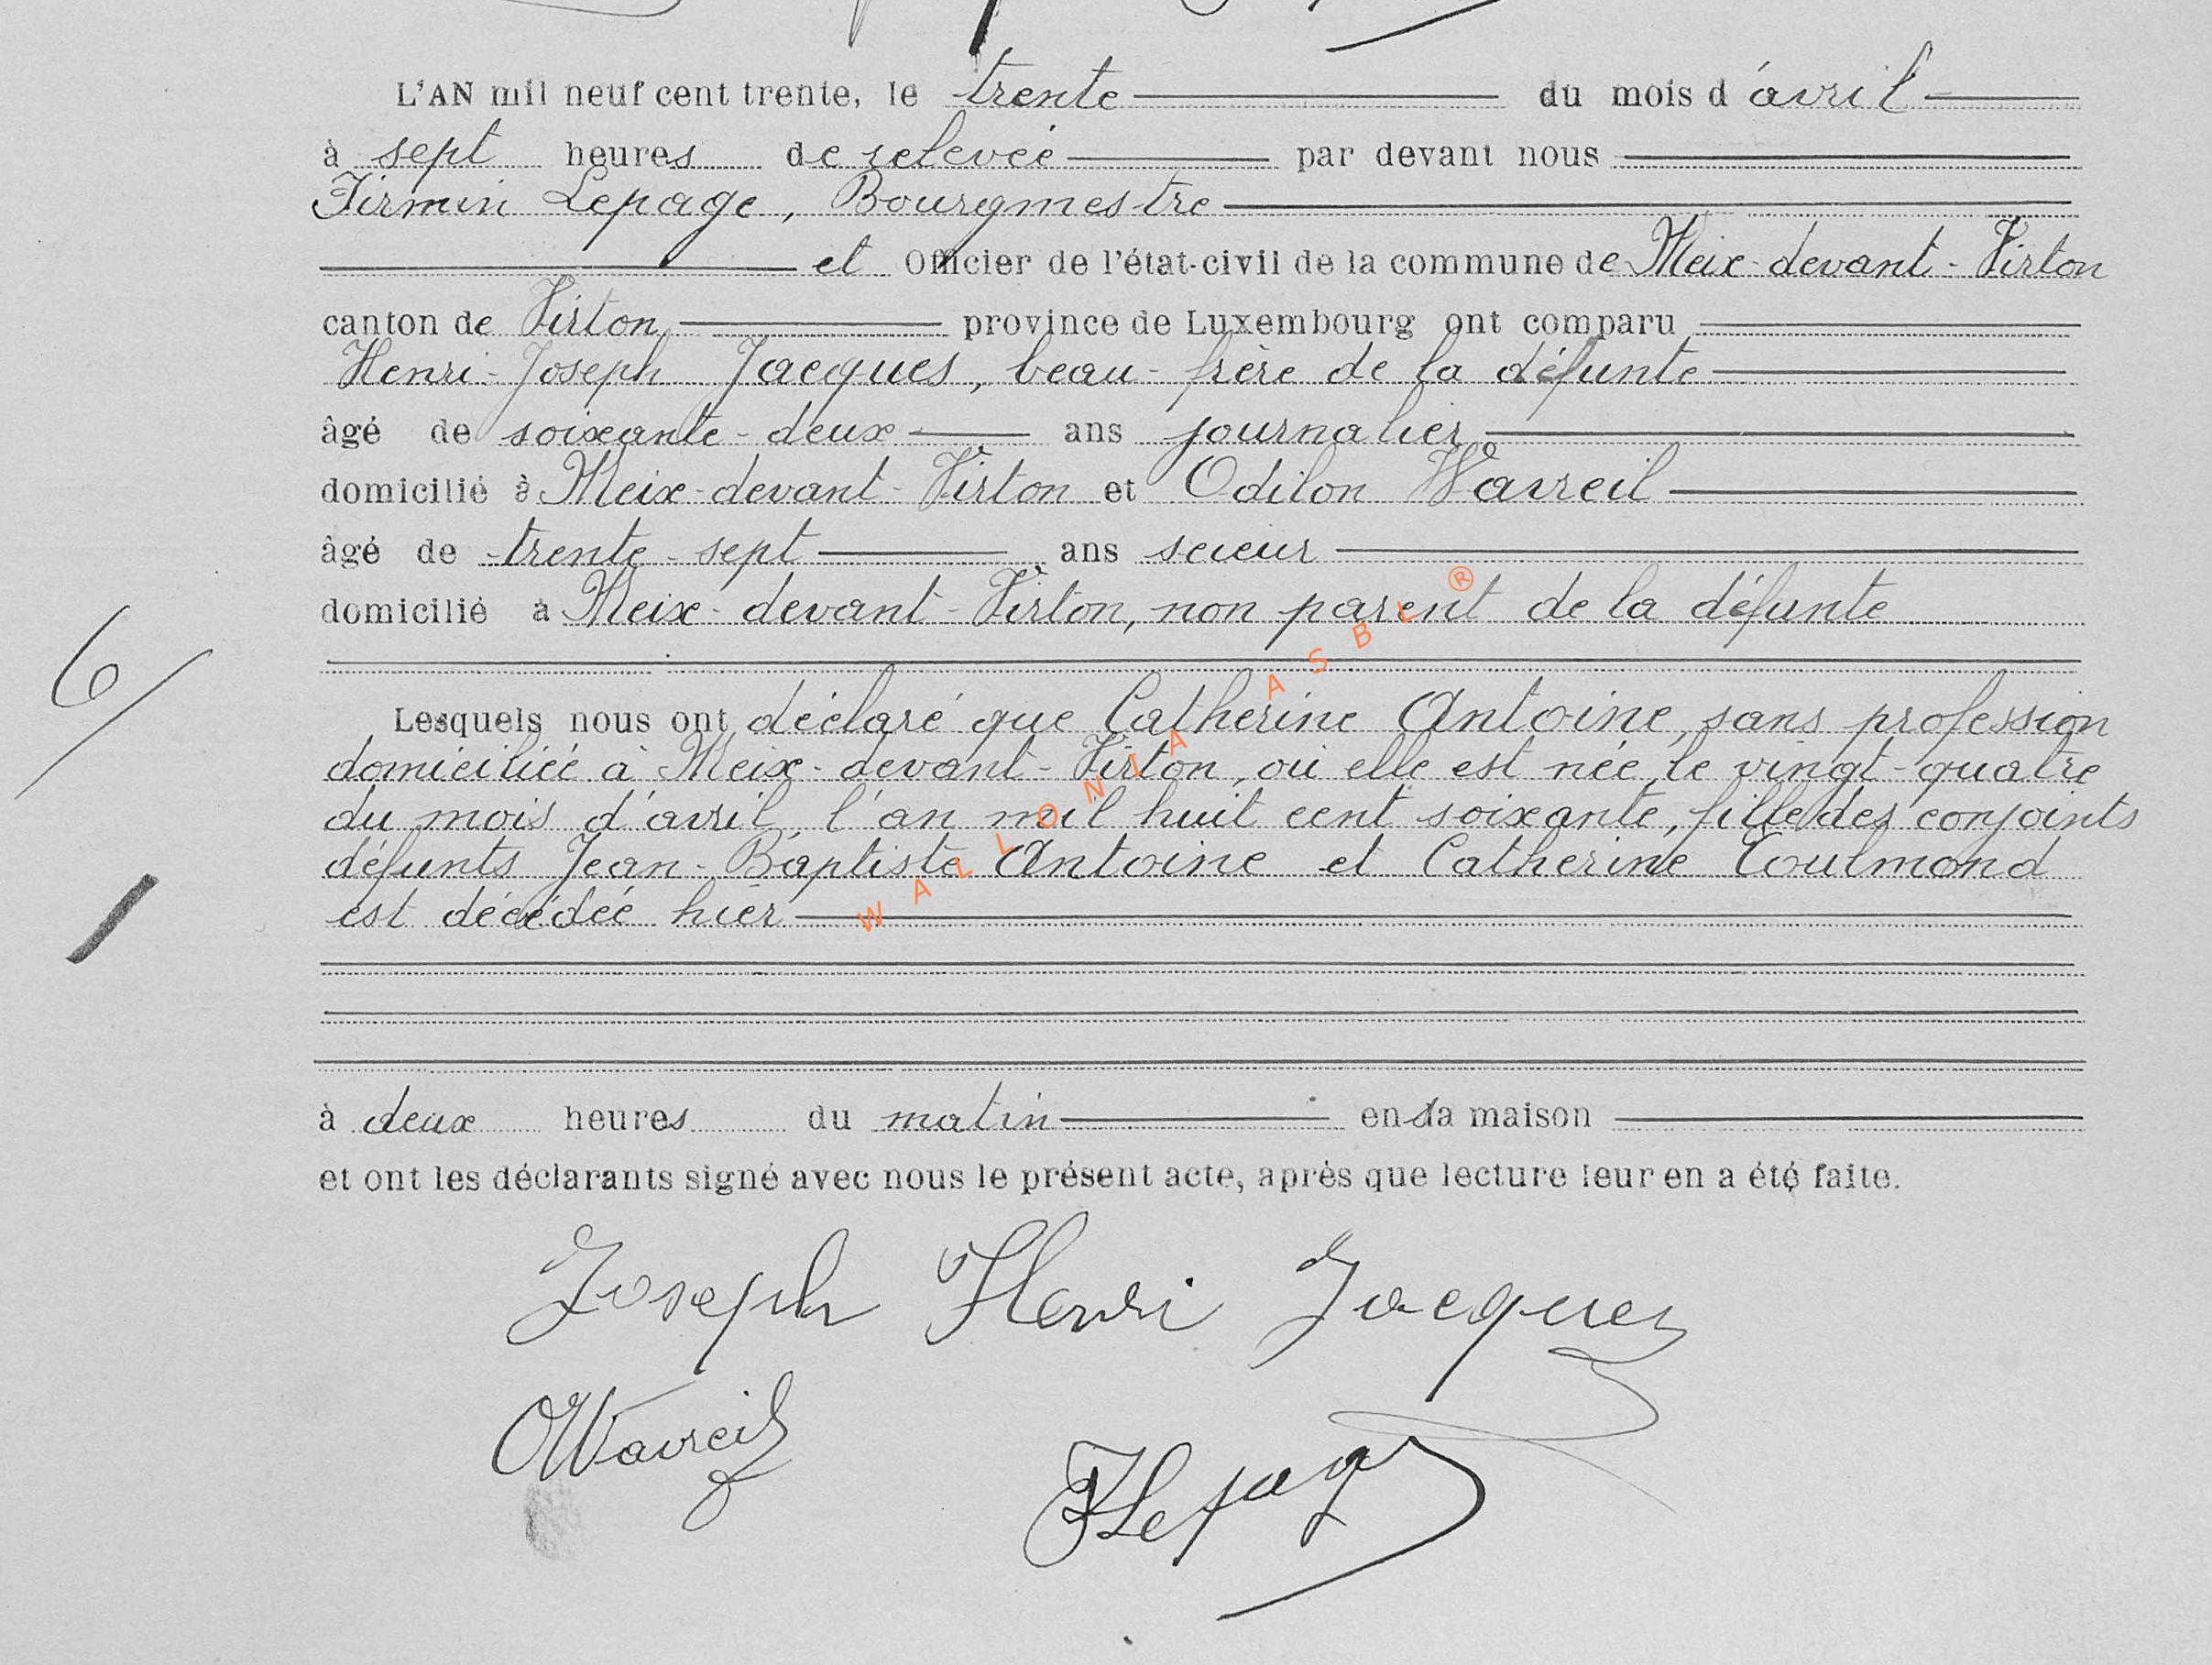 L'AN mil neuf cent trente, le trente du mois d'avril
à sept heures de relevée par devant nous
Firmin Lepage, Bourgmestre
et Officier de l'état-civil de la commune de Meix-devant-Virton
canton de Virton, province de Luxembourg ont comparu
Henri-Joseph Jacques, beau-frère de la défunte
âgé de soixante-deux ans journalier
domicilié à Meix-devant-Virton et Odilon Wavreil
âgé de trente-sept ans scieur
domicilié à Meix-devant-Virton, non parent de la défunte
6
Lesquels nous ont déclaré que Catherine Antoine, sans profession
domiciliée à Meix-devant-Virton, où elle est née, le vingt-quatre
du mois d'avril, l'an mil huit cent soixante, fille des conjoints
défunts Jean-Baptiste Antoine et Catherine Toulmond
est décédée hier
WALLONIA ASBL ®
à deux heures du matin en sa maison
et ont les déclarants signé avec nous le présent acte, après que lecture leur en a été faite.
Joseph Henri Jacques
OWavreil
FLepage